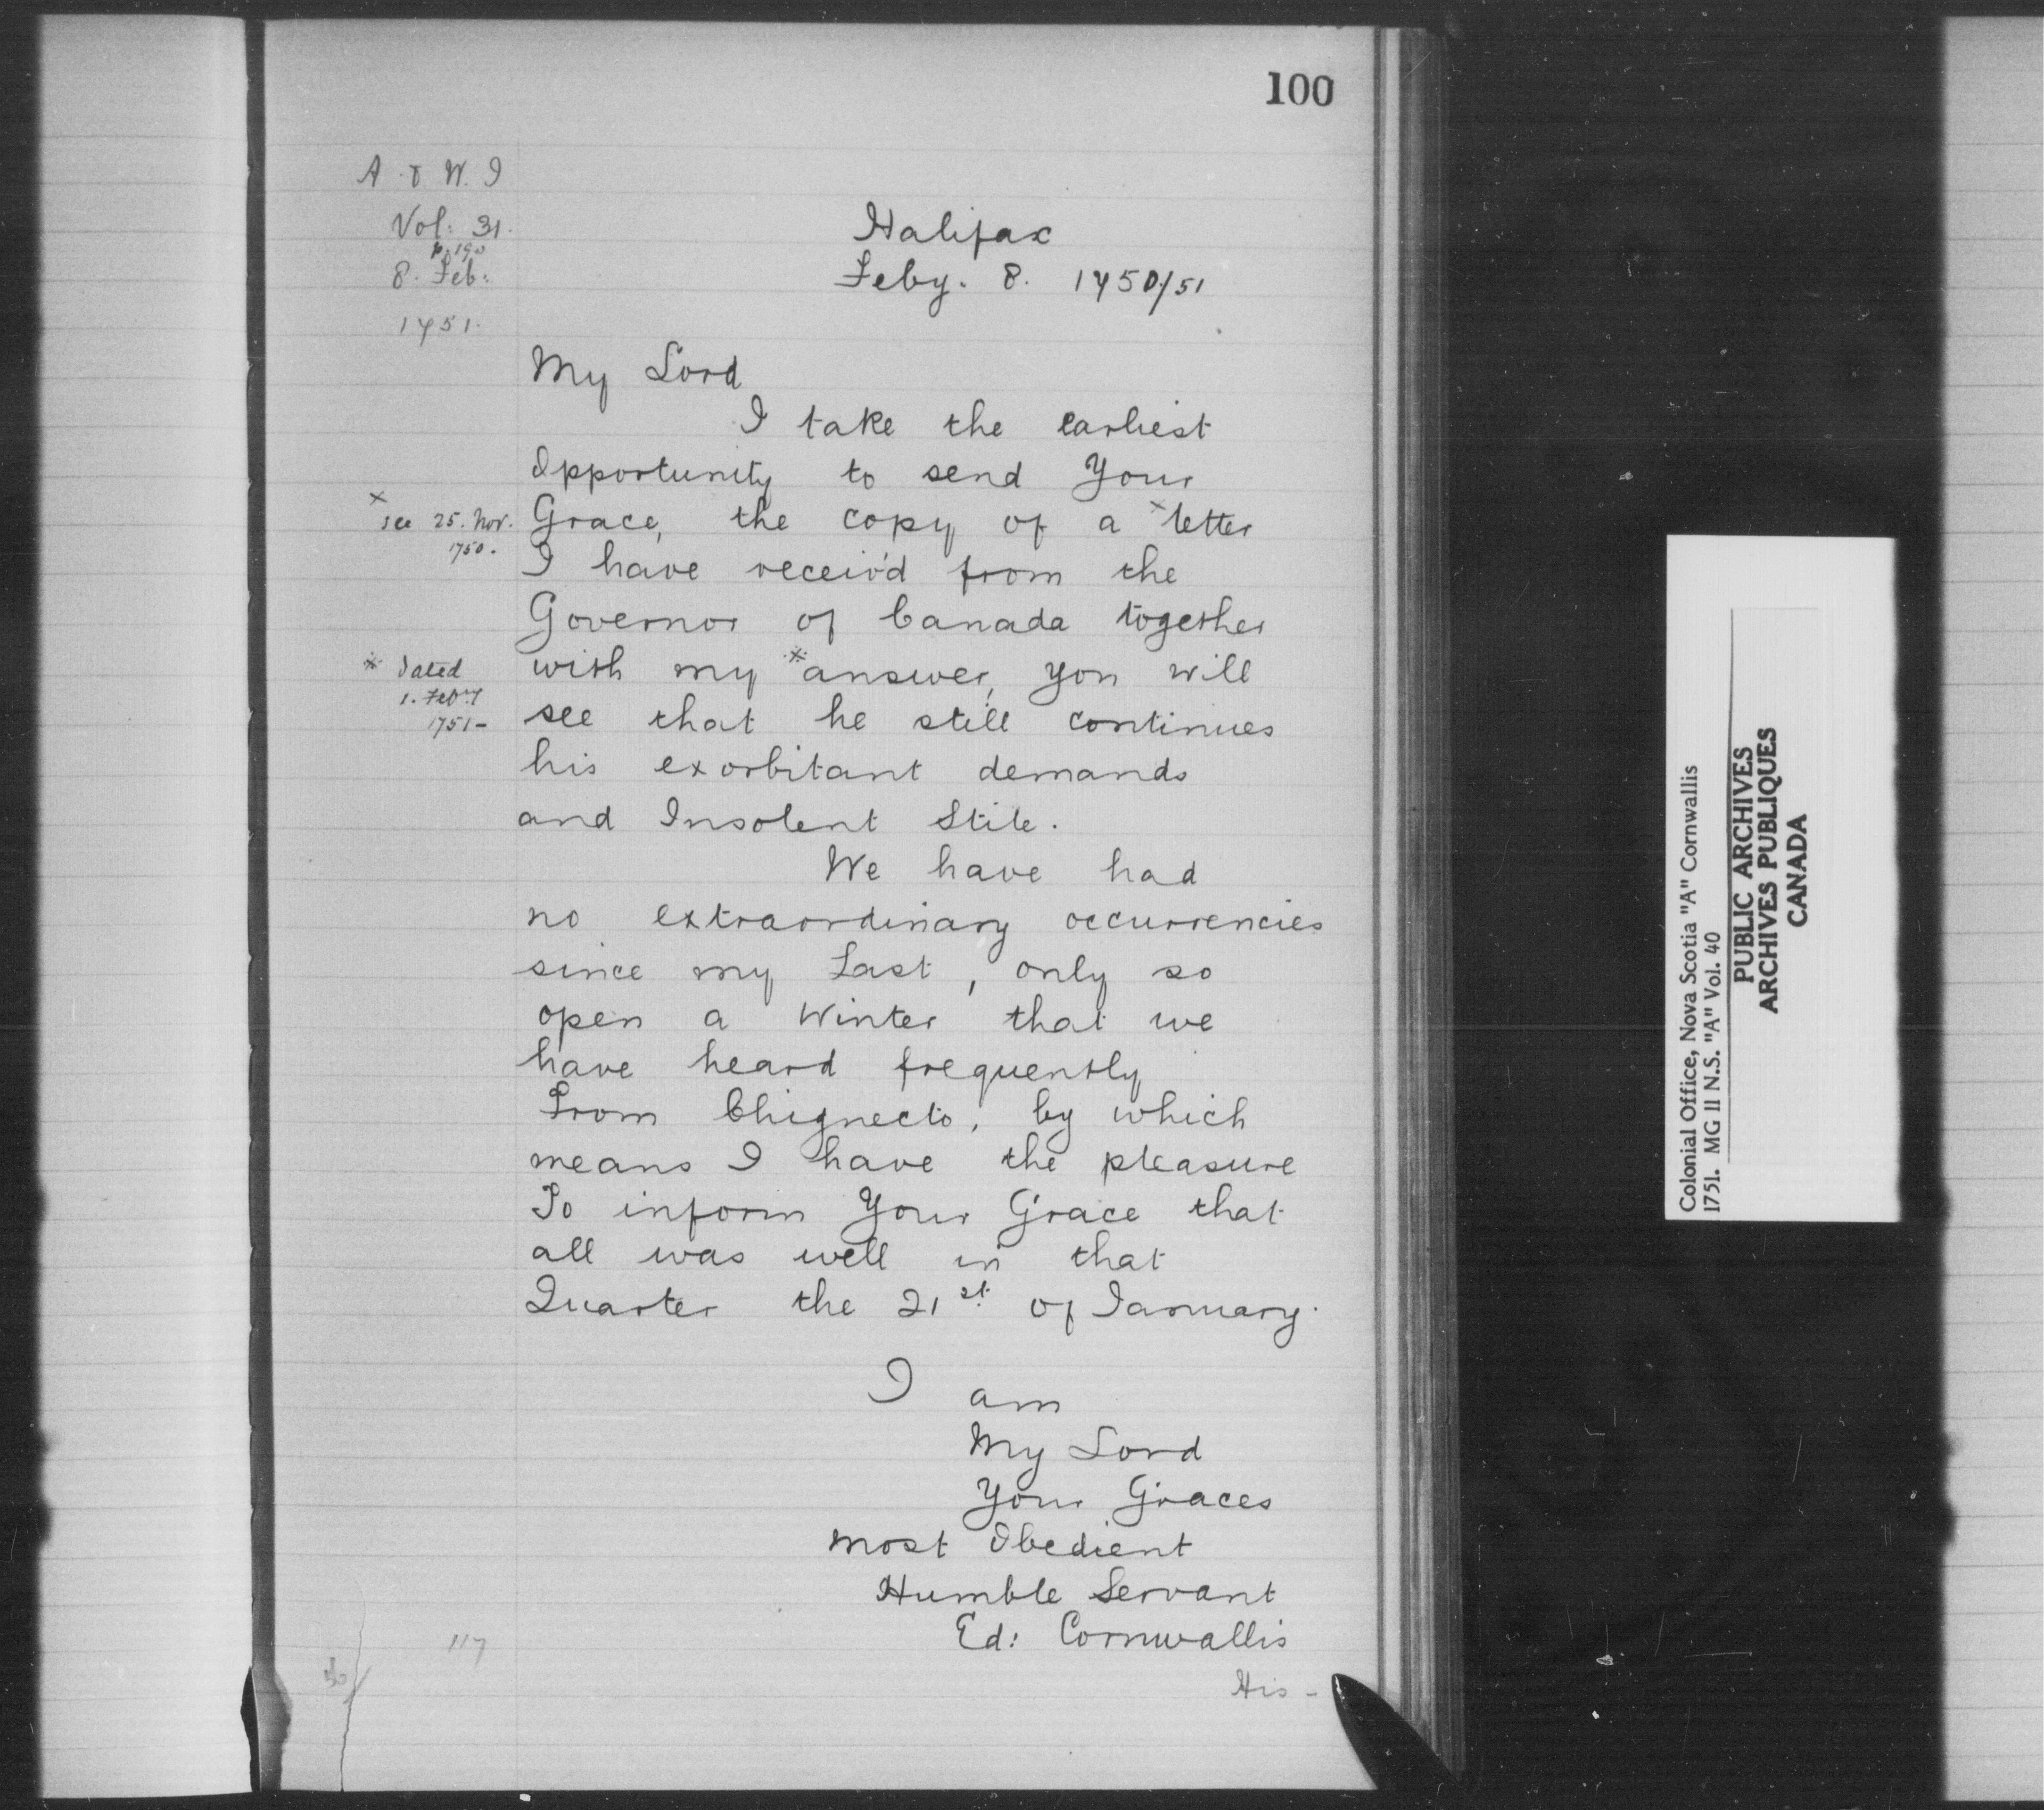 100
A & W. I
Vol: 31.
p. 190
8. Feb:
1751.
Halifax
Feby. 8. 1750/51
My Lord
I take the earliest
Opportunity to send Your
Grace, the copy of a × letter
× see 25. Nov.
1750.
I have receiv'd from the
Governor of Canada together
with my * answer, you will
* Dated
1. Feb:ry
1751-
see that he still continues
his exorbitant demands
and Insolent Stile.
We have had
no extraordinary occurrencies
since my Last, only so
open a Winter that we
have heard frequently
From Chignecto, by which
means I have the pleasure
To inform Your Grace that
all was well in that
Quarter the 21st of January.
I am
My Lord
Your Graces
most Obedient
Humble Servant
Ed: Cornwallis
His -
117
Colonial Office, Nova Scotia "A" Cornwallis
1751. MG 11 N.S. "A" Vol. 40
PUBLIC ARCHIVES
ARCHIVES PUBLIQUES
CANADA